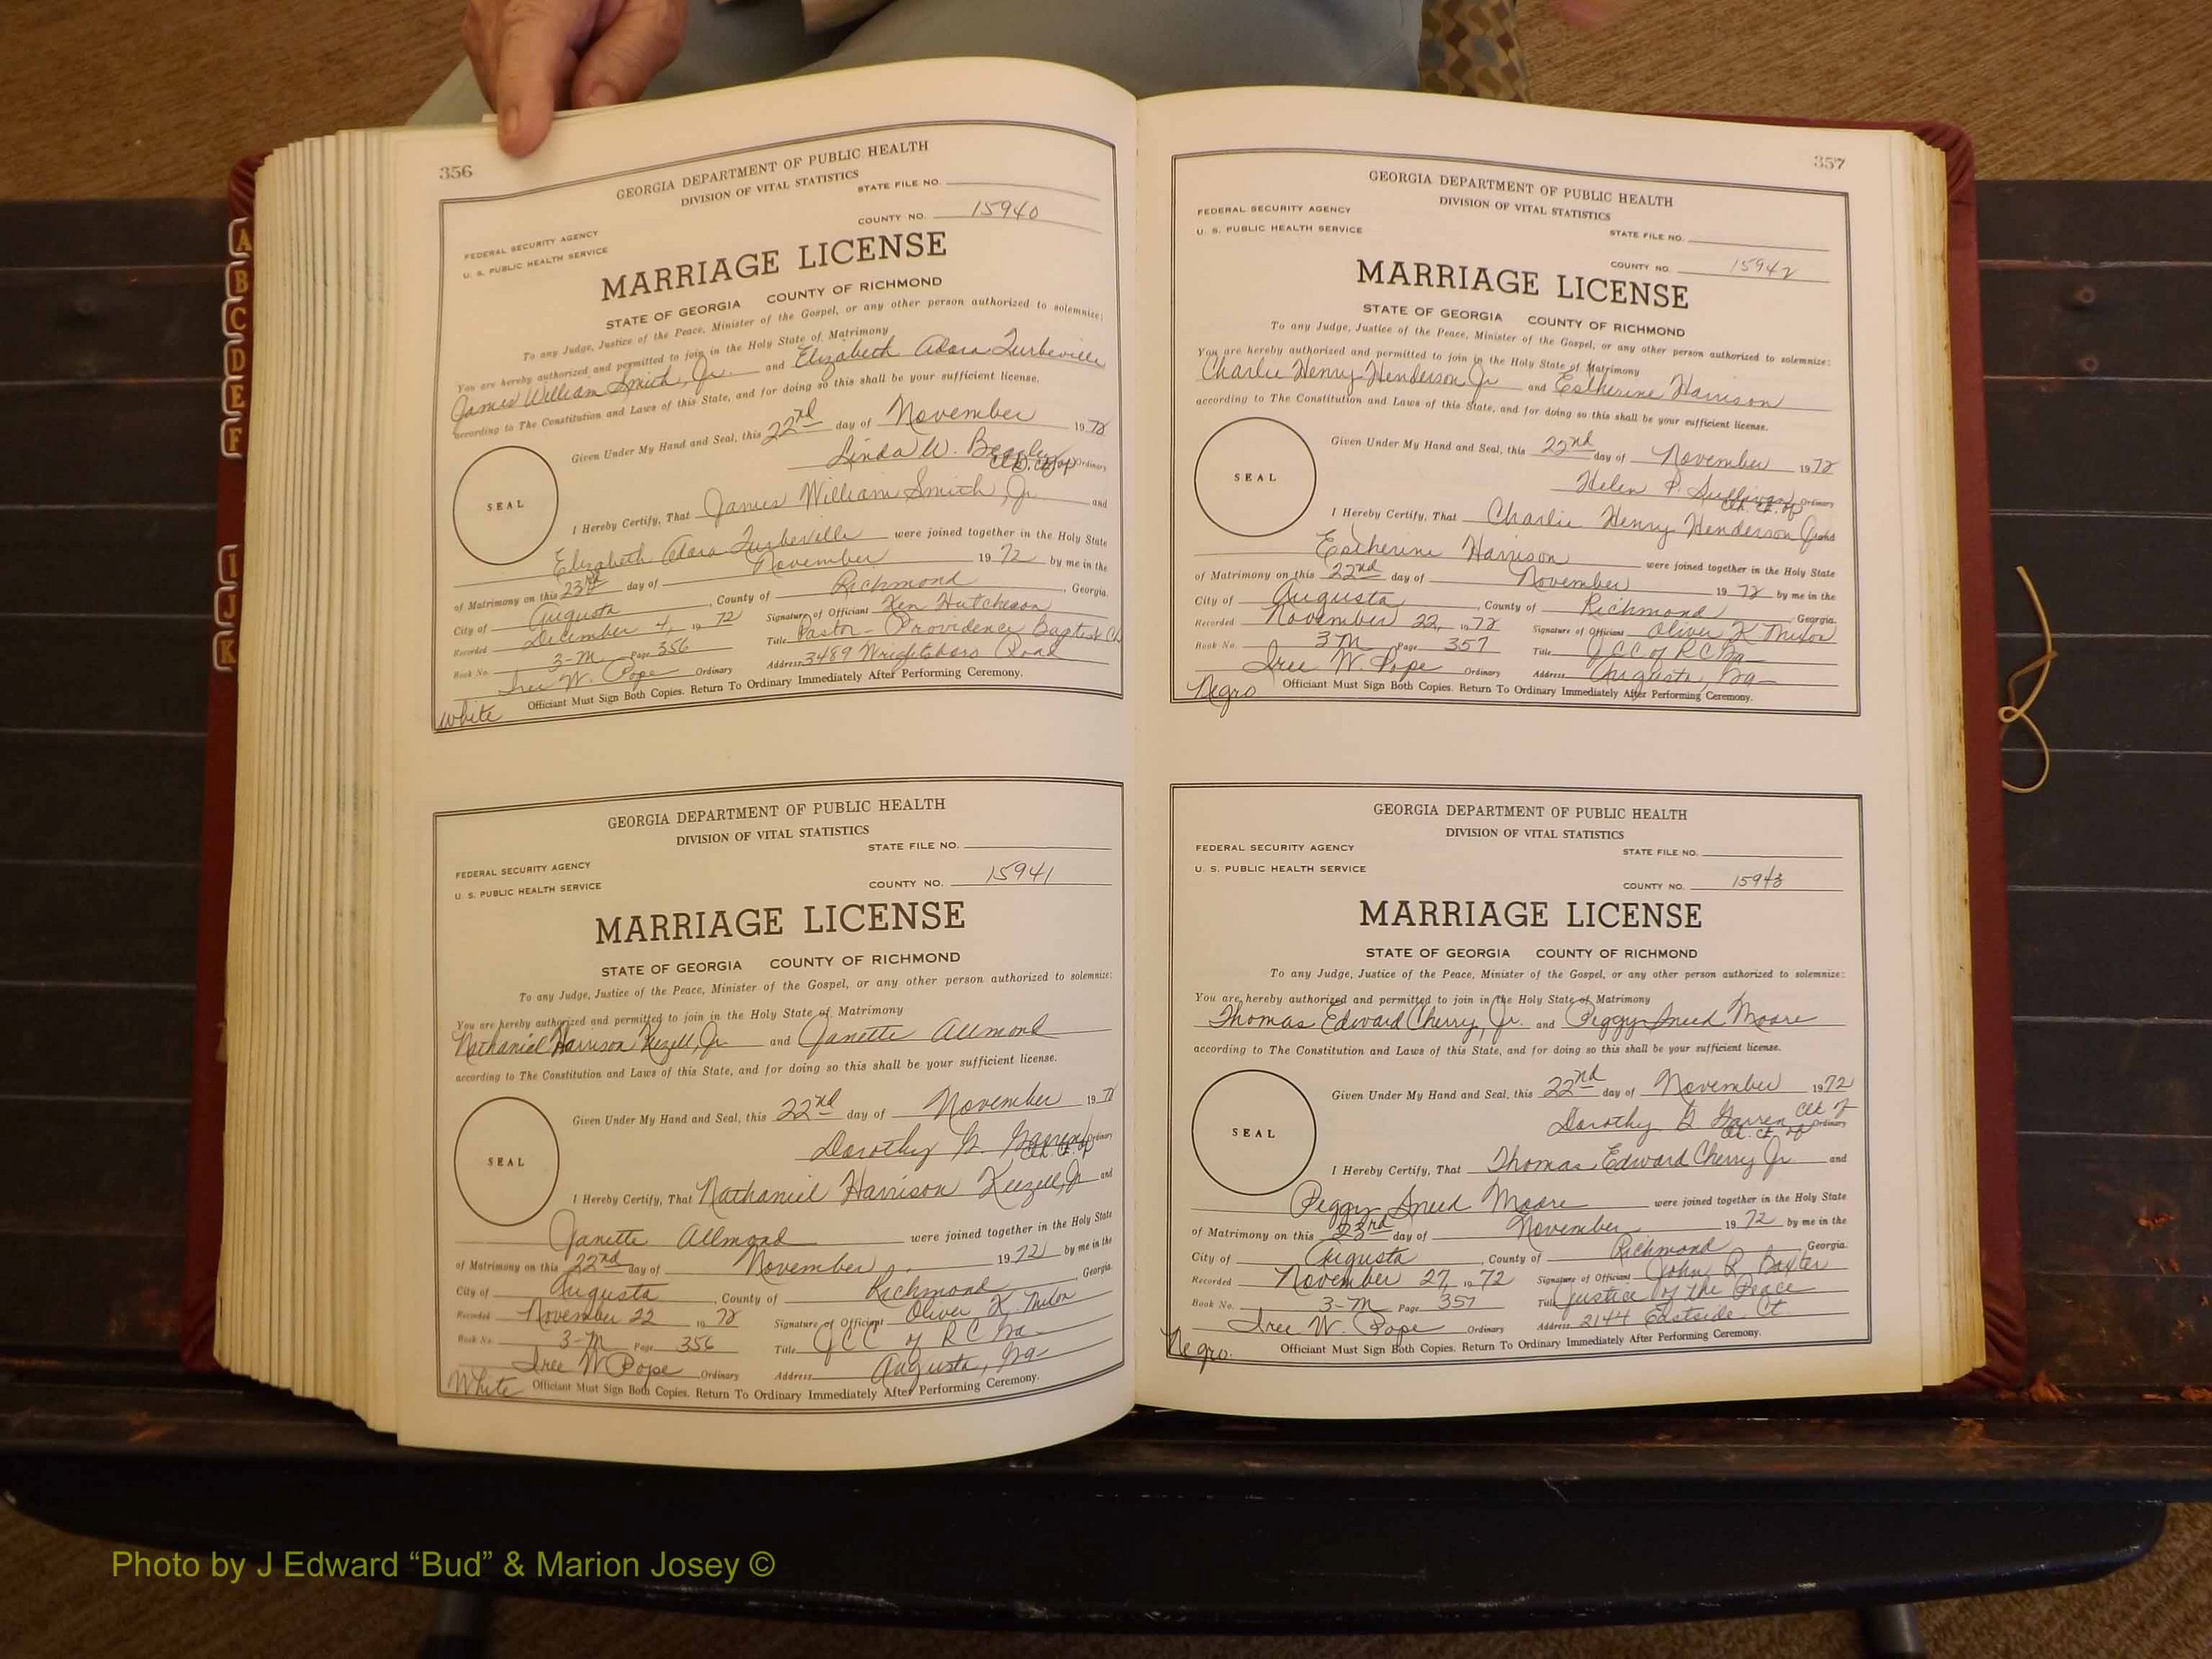 356
GEORGIA DEPARTMENT OF PUBLIC HEALTH
DIVISION OF VITAL STATISTICS
STATE FILE NO.
COUNTY NO. 15940
FEDERAL SECURITY AGENCY
U. S. PUBLIC HEALTH SERVICE
MARRIAGE LICENSE
STATE OF GEORGIA COUNTY OF RICHMOND
To any Judge, Justice of the Peace, Minister of the Gospel, or any other person authorized to solemnize:
You are hereby authorized and permitted to join in the Holy State of Matrimony
James William Smith, Jr. and Elizabeth Adara Turbeville
according to The Constitution and Laws of this State, and for doing so this shall be your sufficient license.
Given Under My Hand and Seal, this 22nd day of November 1972
Linda W. Beasley Ordinary
SEAL
I Hereby Certify, That James William Smith, Jr. and
Elizabeth Adara Turbeville were joined together in the Holy State
of Matrimony on this 23rd day of November 1972 by me in the
City of Augusta, County of Richmond, Georgia.
Recorded December 4, 1972 Signature of Officiant Ken Hutcheson
Book No. 3-M Page 356 Title Pastor - Providence Baptist Ch
Iree W. Pope Ordinary Address 3489 Wrightsboro Road
Officiant Must Sign Both Copies. Return To Ordinary Immediately After Performing Ceremony.
White
GEORGIA DEPARTMENT OF PUBLIC HEALTH
DIVISION OF VITAL STATISTICS
STATE FILE NO.
FEDERAL SECURITY AGENCY
U. S. PUBLIC HEALTH SERVICE
COUNTY NO. 15941
MARRIAGE LICENSE
STATE OF GEORGIA COUNTY OF RICHMOND
To any Judge, Justice of the Peace, Minister of the Gospel, or any other person authorized to solemnize:
You are hereby authorized and permitted to join in the Holy State of Matrimony
Nathaniel Harrison Kezell, Jr. and Janette Allmond
according to The Constitution and Laws of this State, and for doing so this shall be your sufficient license.
Given Under My Hand and Seal, this 22nd day of November 1972
Dorothy G. Garren Ordinary
SEAL
I Hereby Certify, That Nathaniel Harrison Keezell, Jr and
Janette Allmond were joined together in the Holy State
of Matrimony on this 22nd day of November 1972 by me in the
City of Augusta, County of Richmond, Georgia.
Recorded November 22 1972 Signature of Officiant Oliver K. Mixon
Book No. 3-M Page 356 Title JCC of RC Ga
Iree W Pope Ordinary Address Augusta, Ga
White Officiant Must Sign Both Copies. Return To Ordinary Immediately After Performing Ceremony.
357
GEORGIA DEPARTMENT OF PUBLIC HEALTH
DIVISION OF VITAL STATISTICS
FEDERAL SECURITY AGENCY
U. S. PUBLIC HEALTH SERVICE
STATE FILE NO.
COUNTY NO 15942
MARRIAGE LICENSE
STATE OF GEORGIA COUNTY OF RICHMOND
To any Judge, Justice of the Peace, Minister of the Gospel, or any other person authorized to solemnize:
You are hereby authorized and permitted to join in the Holy State of Matrimony
Charlie Henry Henderson Jr and Estherine Harrison
according to The Constitution and Laws of this State, and for doing so this shall be your sufficient license.
Given Under My Hand and Seal, this 22nd day of November 1972
Helen P. Sullivan Ordinary
SEAL
I Hereby Certify, That Charlie Henry Henderson Jr and
Estherine Harrison were joined together in the Holy State
of Matrimony on this 22nd day of November 1972 by me in the
City of Augusta, County of Richmond, Georgia.
Recorded November 22, 1972 Signature of Officiant Oliver K Mixon
Book No. 3 M Page 357 Title JCC of RC Ga
Iree W. Pope Ordinary Address Augusta, Ga
Negro Officiant Must Sign Both Copies. Return To Ordinary Immediately After Performing Ceremony.
GEORGIA DEPARTMENT OF PUBLIC HEALTH
DIVISION OF VITAL STATISTICS
FEDERAL SECURITY AGENCY
STATE FILE NO.
U. S. PUBLIC HEALTH SERVICE
COUNTY NO. 15943
MARRIAGE LICENSE
STATE OF GEORGIA COUNTY OF RICHMOND
To any Judge, Justice of the Peace, Minister of the Gospel, or any other person authorized to solemnize:
You are hereby authorized and permitted to join in the Holy State of Matrimony
Thomas Edward Cherry, Jr. and Peggy Sneed Moore
according to The Constitution and Laws of this State, and for doing so this shall be your sufficient license.
Given Under My Hand and Seal, this 22nd day of November 1972
Dorothy G. Garren Ordinary
SEAL
I Hereby Certify, That Thomas Edward Cherry Jr and
Peggy Sneed Moore were joined together in the Holy State
of Matrimony on this 23rd day of November 1972 by me in the
City of Augusta, County of Richmond, Georgia.
Recorded November 27, 1972 Signature of Officiant John R Baxter
Book No. 3-M Page 357 Title Justice of the Peace
Iree W. Pope Ordinary Address 2144 Eastside Ct
Negro. Officiant Must Sign Both Copies. Return To Ordinary Immediately After Performing Ceremony.
A
B
C
D
E
F
I
J
K
Photo by J Edward “Bud” & Marion Josey ©